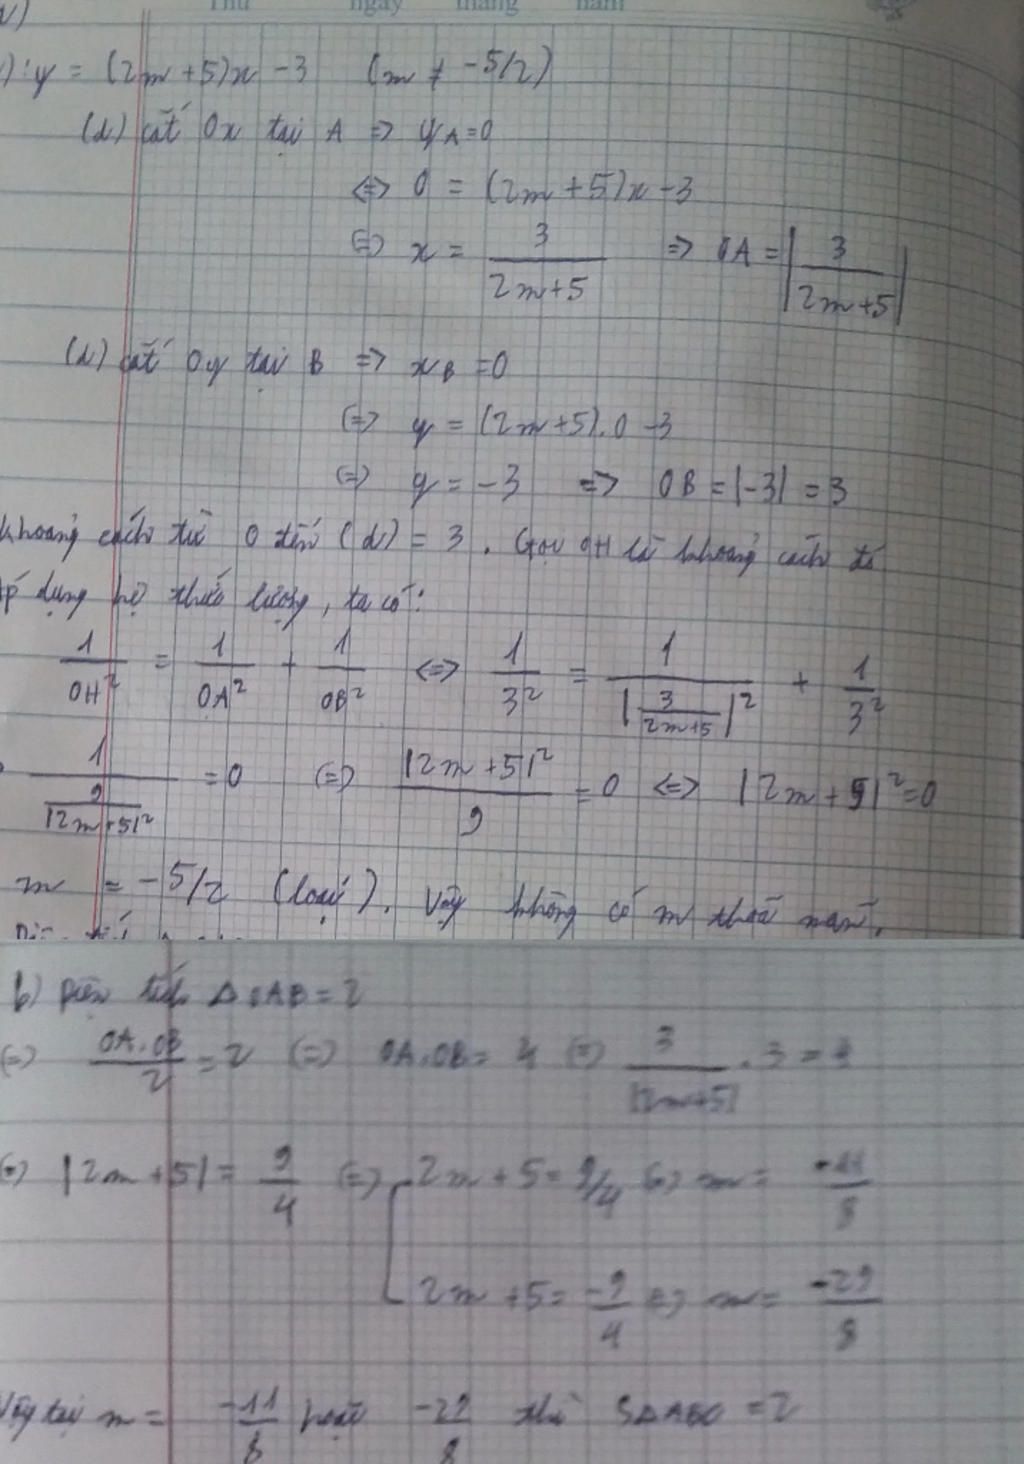 Thứ ngày tháng năm
): y = (2m+5)x -3 (m ≠ -5/2)
(d) cắt Ox tại A => yA=0
<=> 0 = (2m+5)x -3
<=> x = 3/(2m+5) => OA = |3/(2m+5)|
(d) cắt Oy tại B => xB =0
<=> y = (2m+5).0 -3
<=> y = -3 => OB = |-3| = 3
khoảng cách từ O đến (d) = 3. Gọi OH là khoảng cách đó
Áp dụng hệ thức lượng, ta có:
1/OH² = 1/OA² + 1/OB² <=> 1/3² = 1/|3/(2m+5)|² + 1/3²
1/(9/|2m+5|²) = 0 <=> |2m+5|²/9 = 0 <=> |2m+5|²=0
m = -5/2 (loại). Vậy không có m thoả mãn.
b) Diện tích Δ OAB = 2
<=> OA.OB/2 = 2 <=> OA.OB = 4 <=> 3/|2m+5| . 3 = 4
<=> |2m+5| = 9/4 <=> [ 2m+5 = 9/4 <=> m = -11/8
2m+5 = -9/4 <=> m = -29/8
Vậy tại m = -11/8 hoặc -29/8 thì SΔABO = 2